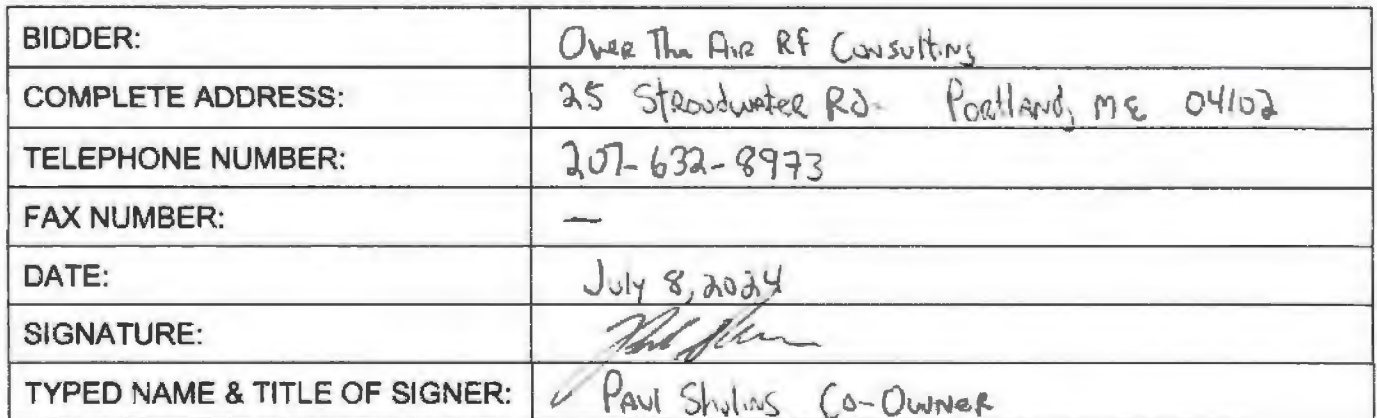 BIDDER: Over The Air RF Consulting
COMPLETE ADDRESS: 25 Stroudwater Rd. Portland, ME 04102
TELEPHONE NUMBER: 207-632-8973
FAX NUMBER: —
DATE: July 8, 2024
SIGNATURE:
TYPED NAME & TITLE OF SIGNER: Paul Shulins Co-Owner